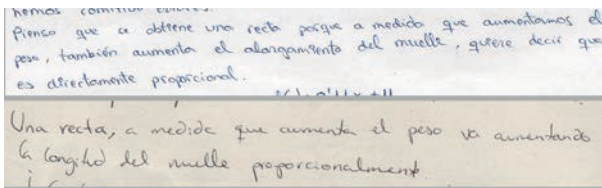 hemos cometido errores.
Pienso que se obtiene una recta porque a medida que aumentamos el
peso, también aumenta el alargamiento del muelle, quiere decir que
es directamente proporcional.
Una recta, a medida que aumenta el peso va aumentando
la longitud del muelle proporcionalment